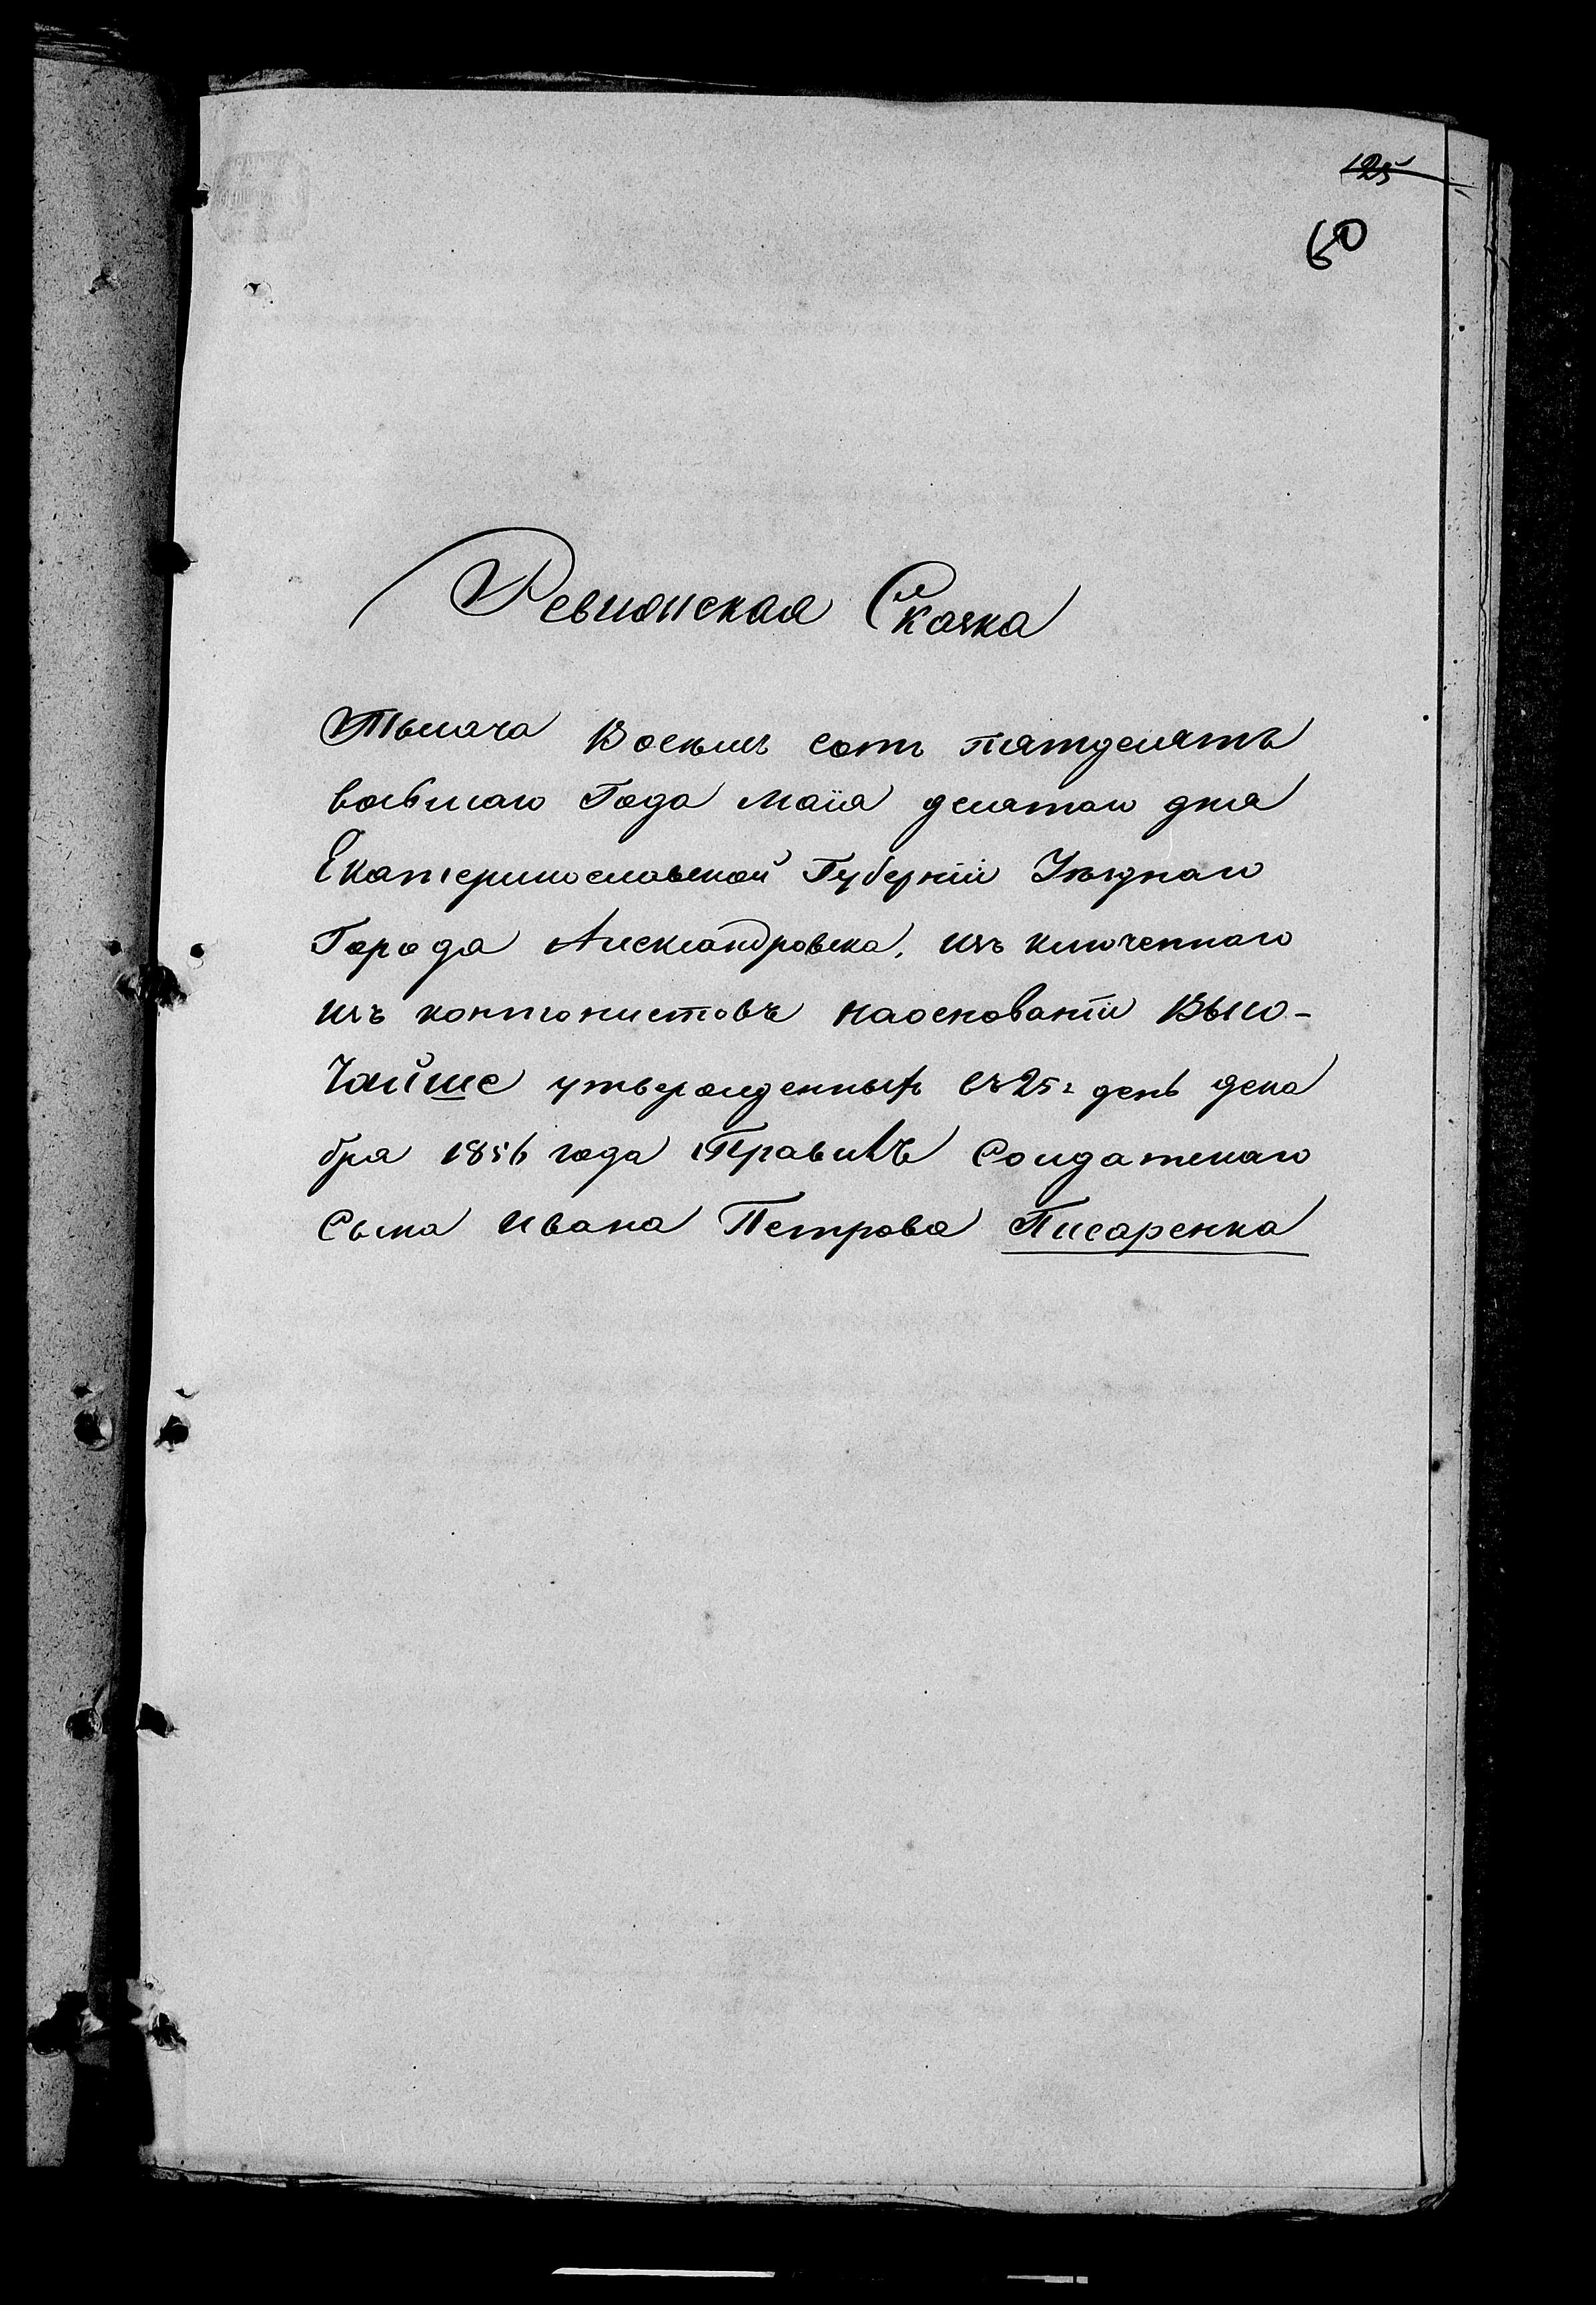 125
60
Ревизская Сказка
Тысяча Восемь сотъ пятдесятъ
восьмаго Года маія десятаго дня
Екатеринославской Губерніи Уѣзднаго
Города Александровска, изъ ключеннаго
изъ контонистовъ наоснованіи Высо-
Чайше утвержденныхъ въ 25 г. день дека
бря 1856 года Правилъ Солдатскаго
Сына Ивана Петрова Писаренка